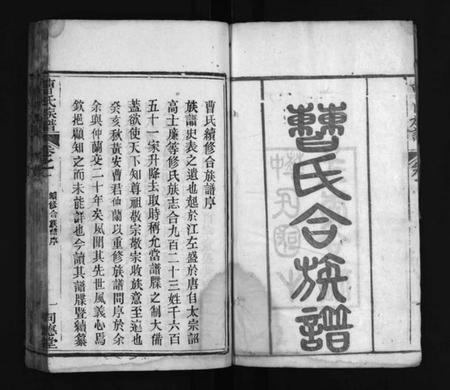 曹氏合族譜
曹氏續修合族譜序
族譜史表之遺也起於江左盛於唐自太宗詔
高士廉等修氏族志合九百二十三姓千六百
五十一家升降去取時稱允當譜牒之制大備
蓋欲使天下知尊祖敬宗敬宗收族意至遠也
癸亥秋黃安曹君仙蘭以重修族譜問序於余
余與仲蘭交二十年矣夙聞其先世風義心焉
欽挹顧知之而未能詳也今讀其譜牒暨續纂
曹氏族譜
卷之一
續修合族譜序
一